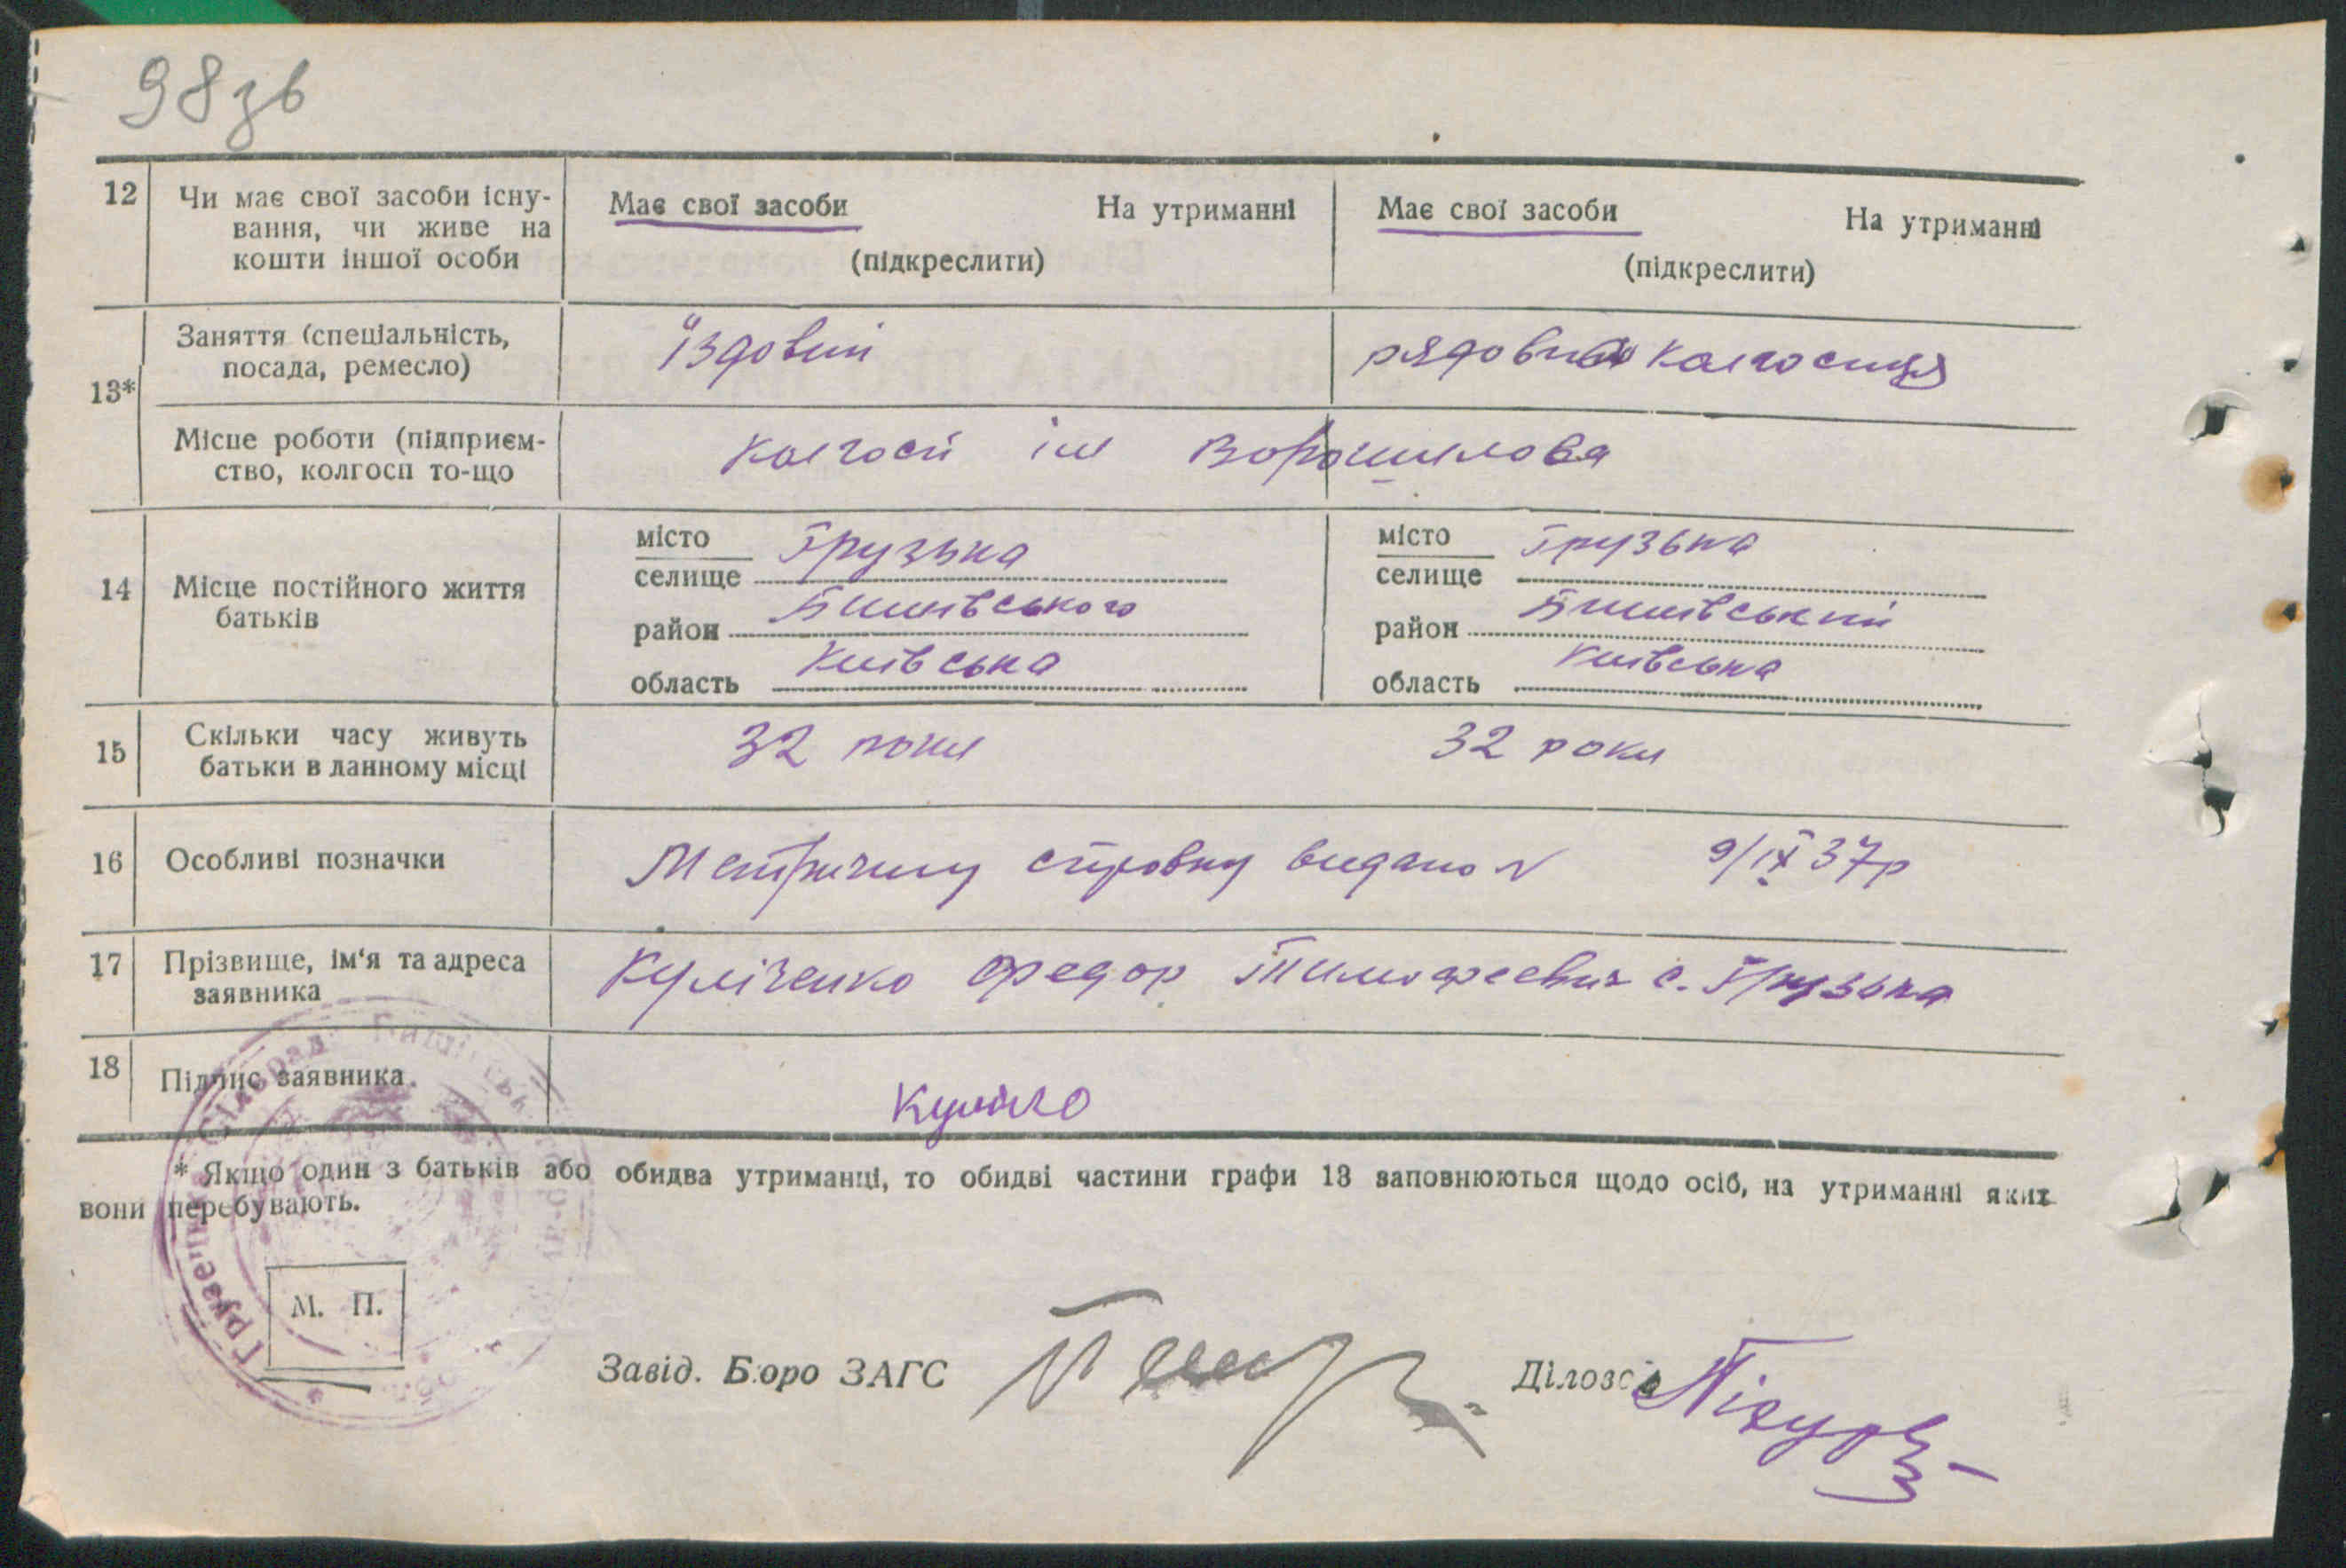 98 зв
12 Чи має свої засоби існу-
вання, чи живе на
кошти іншої особи
Має свої засоби На утриманні
(підкреслити)
Має свої засоби На утриманні
(підкреслити)
13* Заняття (спеціальність,
посада, ремесло)
їздовий
рядовий колгоспу
Місце роботи (підприєм-
ство, колгосп то-що
колгосп ім Ворошилова
14 Місце постійного життя
батьків
місто
селище Грузька
район Бишівського
область Київська
місто
селище Грузька
район Бишівський
область Київська
15 Скільки часу живуть
батьки в данному місці
32 роки
32 роки
16 Особливі позначки
Метричну справку видано N 9/IX 37р
17 Прізвище, ім'я та адреса
заявника
Куліченко Федор Тимофеевич с. Грузька
18 Підпис заявника
* Якщо один з батьків або обидва утриманці, то обидві частини графи 13 заповнюються щодо осіб, на утриманні яких
вони перебувають.
М. П.
Завід. Бюро ЗАГС
Діловод